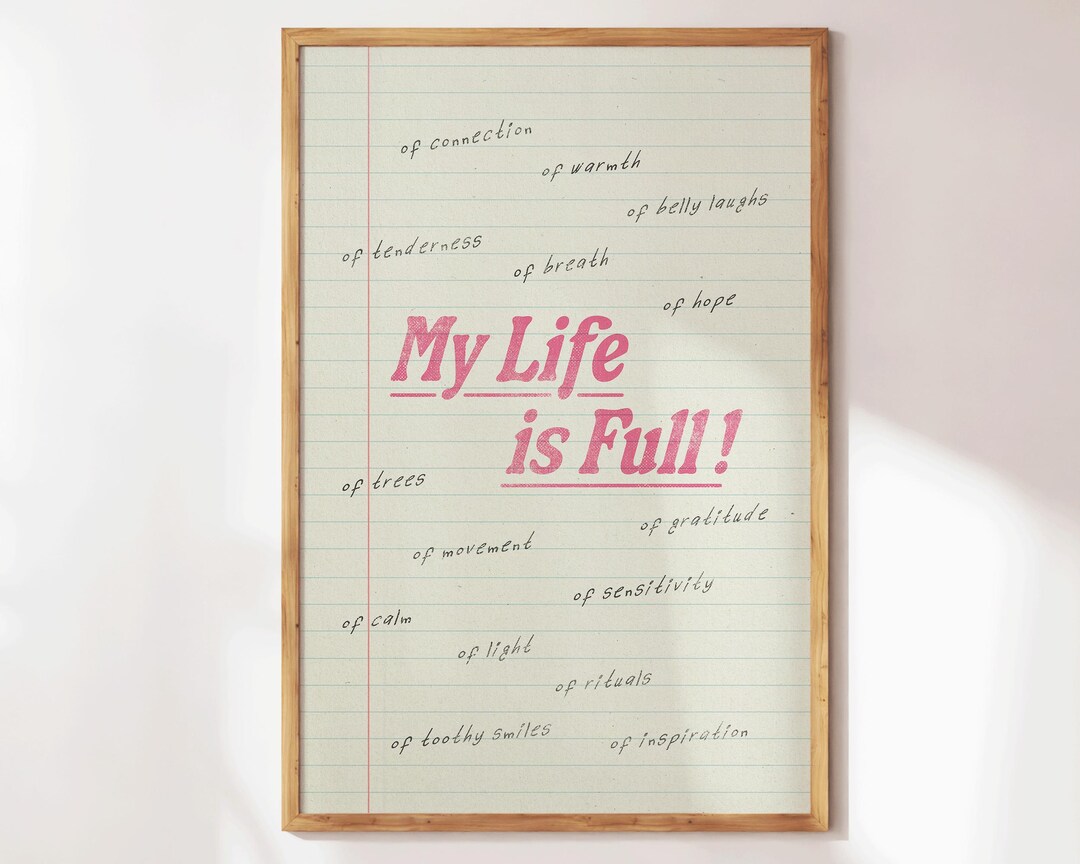 of connection
of warmth
of belly laughs
of tenderness
of breath
of hope
My Life
is Full!
of trees
of gratitude
of movement
of sensitivity
of calm
of light
of rituals
of toothy smiles
of inspiration